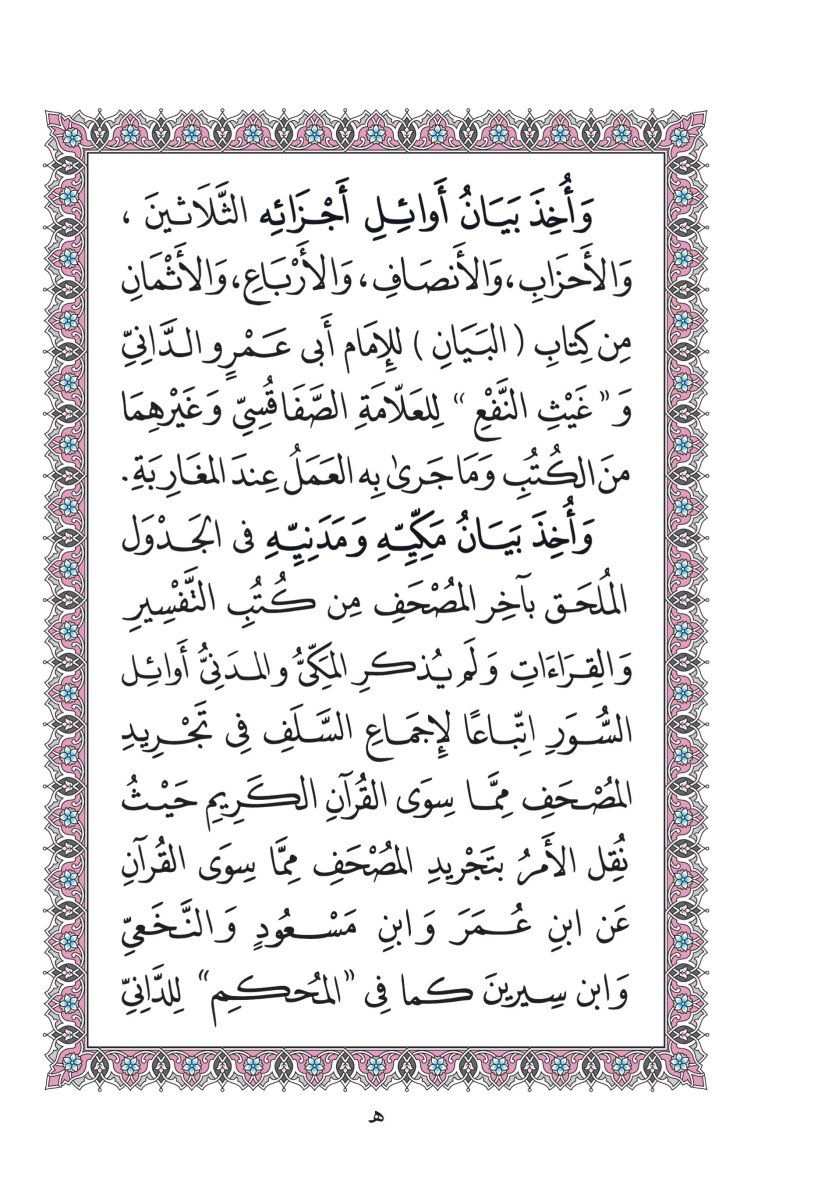 وَأُخِذَ بَيَانُ أَوائِلِ أَجْزَائِهِ الثَّلَاثينَ ،
وَالأَحزَابِ،وَالأَنصَافِ، وَالأَرْبَاعِ، وَالأَثْمَانِ
مِن كِتابِ ( البَيَانِ ) للإِمَام أَبى عَمْرٍو الدَّانِيِّ
وَ " غَيْثِ النَّفْعِ " لِلعَلّامَةِ الصَّفَاقُسِيِّ وَغَيْرِهِمَا
منَ الكُتُبِ وَمَا جَرىٰ بِه العَمَلُ عِندَ المغَارِبَةِ.
وَأُخِذَ بَيَانُ مَكِّيِّهِ وَمَدَنِيِّهِ فى الجَدْوَل
المُلحَق بآخِر المصُحَفِ مِن كُتُبِ التَّفْسِيرِ
وَالقِرَاءَاتِ وَلَم يُذكرِ المَكِّيُّ والمدَنِيُّ أَوائِل
السُّوَرِ اتِّباعًا لإِجمَاعِ السَّلَفِ فِى تَجْرِيدِ
المصُحَفِ مِمَّا سِوَى القُرآنِ الكَرِيمِ حَيْثُ
نُقِل الأَمرُ بتَجْريدِ المصُحَفِ مِمَّا سِوَى القُرآنِ
عَن ابنِ عُمَرَ وَابنِ مَسْعُودٍ وَالنَّخَعِيِّ
وَابن سِيرينَ كما فِى "المُحكمِ" لِلدَّانِيِّ
ھ